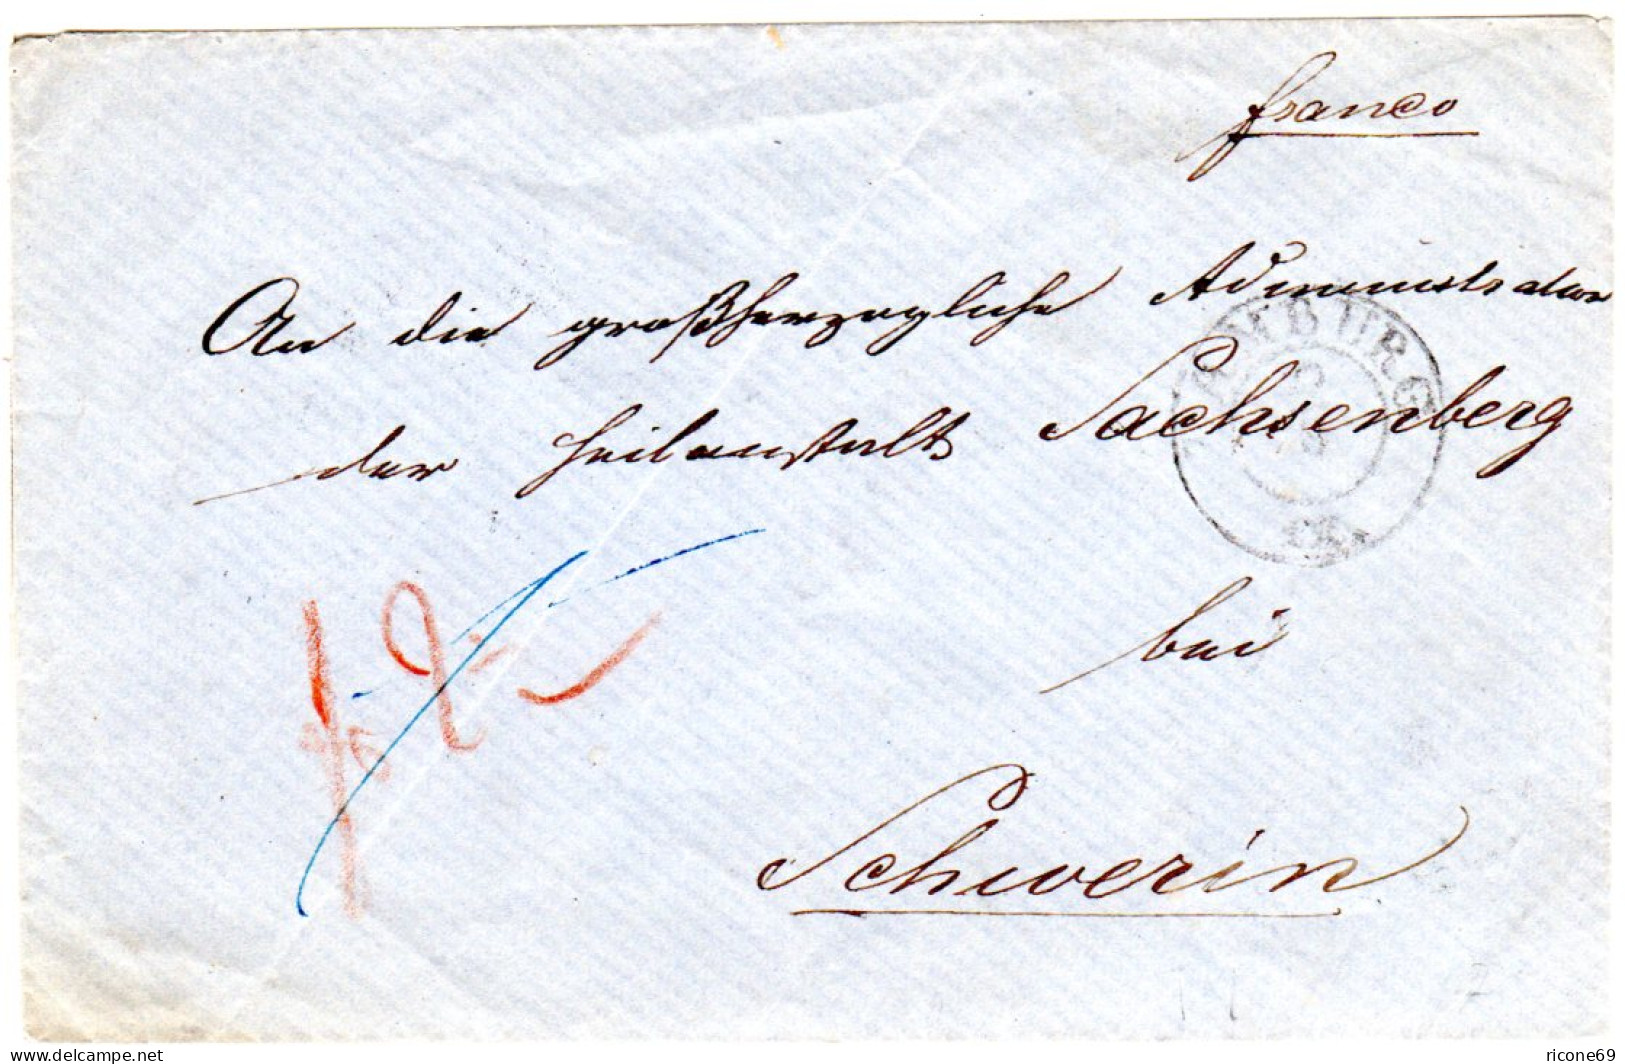 franco
An die großherzogliche Administration
HAMBURG
der Heilanstalt Sachsenberg
bei
Schwerin
www.delcampe.net
ricone69